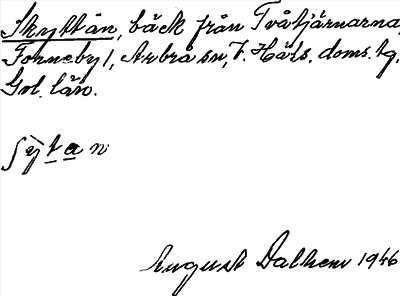 Skyttån, bäck från Tvåtjärnarna,
Forneby 1, Arbrå sn, V. Häls. doms. tg.
Gbl. län.
ʃỳtan
August Dalhem 1946